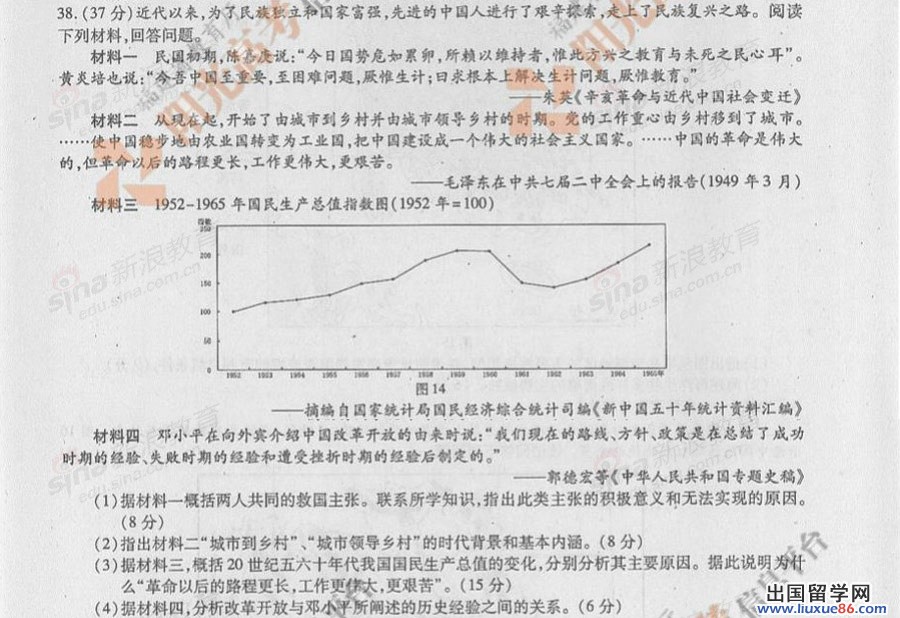 38.(37 分)近代以来,为了民族独立和国家富强,先进的中国人进行了艰辛探索,走上了民族复兴之路。阅读
下列材料,回答问题。
材料一 民国初期,陈嘉庚说:“今日国势危如累卵,所赖以维持者,惟此方兴之教育与未死之民心耳”。
黄炎培也说:“今吾中国至重要,至困难问题,厥惟生计;曰求根本上解决生计问题,厥惟教育。”
——朱英《辛亥革命与近代中国社会变迁》
材料二 从现在起,开始了由城市到乡村并由城市领导乡村的时期。党的工作重心由乡村移到了城市。
……使中国稳步地由农业国转变为工业国,把中国建设成一个伟大的社会主义国家。……中国的革命是伟大
的,但革命以后的路程更长,工作更伟大,更艰苦。
——毛泽东在中共七届二中全会上的报告(1949 年 3 月)
材料三 1952-1965 年国民生产总值指数图(1952 年=100)
250
200
150
100
50
0
1952 1953 1954 1955 1956 1957 1958 1959 1960 1961 1962 1963 1964 1965年
图 14
——摘编自国家统计局国民经济综合统计司编《新中国五十年统计资料汇编》
材料四 邓小平在向外宾介绍中国改革开放的由来时说:“我们现在的路线、方针、政策是在总结了成功
时期的经验、失败时期的经验和遭受挫折时期的经验后制定的。”
——郭德宏等《中华人民共和国专题史稿》
(1)据材料一概括两人共同的救国主张。联系所学知识,指出此类主张的积极意义和无法实现的原因。
(8 分)
(2)指出材料二“城市到乡村”、“城市领导乡村”的时代背景和基本内涵。(8 分)
(3)据材料三,概括 20 世纪五六十年代我国国民生产总值的变化,分别分析其主要原因。据此说明为什
么“革命以后的路程更长,工作更伟大,更艰苦”。(15 分)
(4)据材料四,分析改革开放与邓小平所阐述的历史经验之间的关系。(6 分)
sina 新浪教育
edu.sina.com.cn
出国留学网
www.liuxue86.com